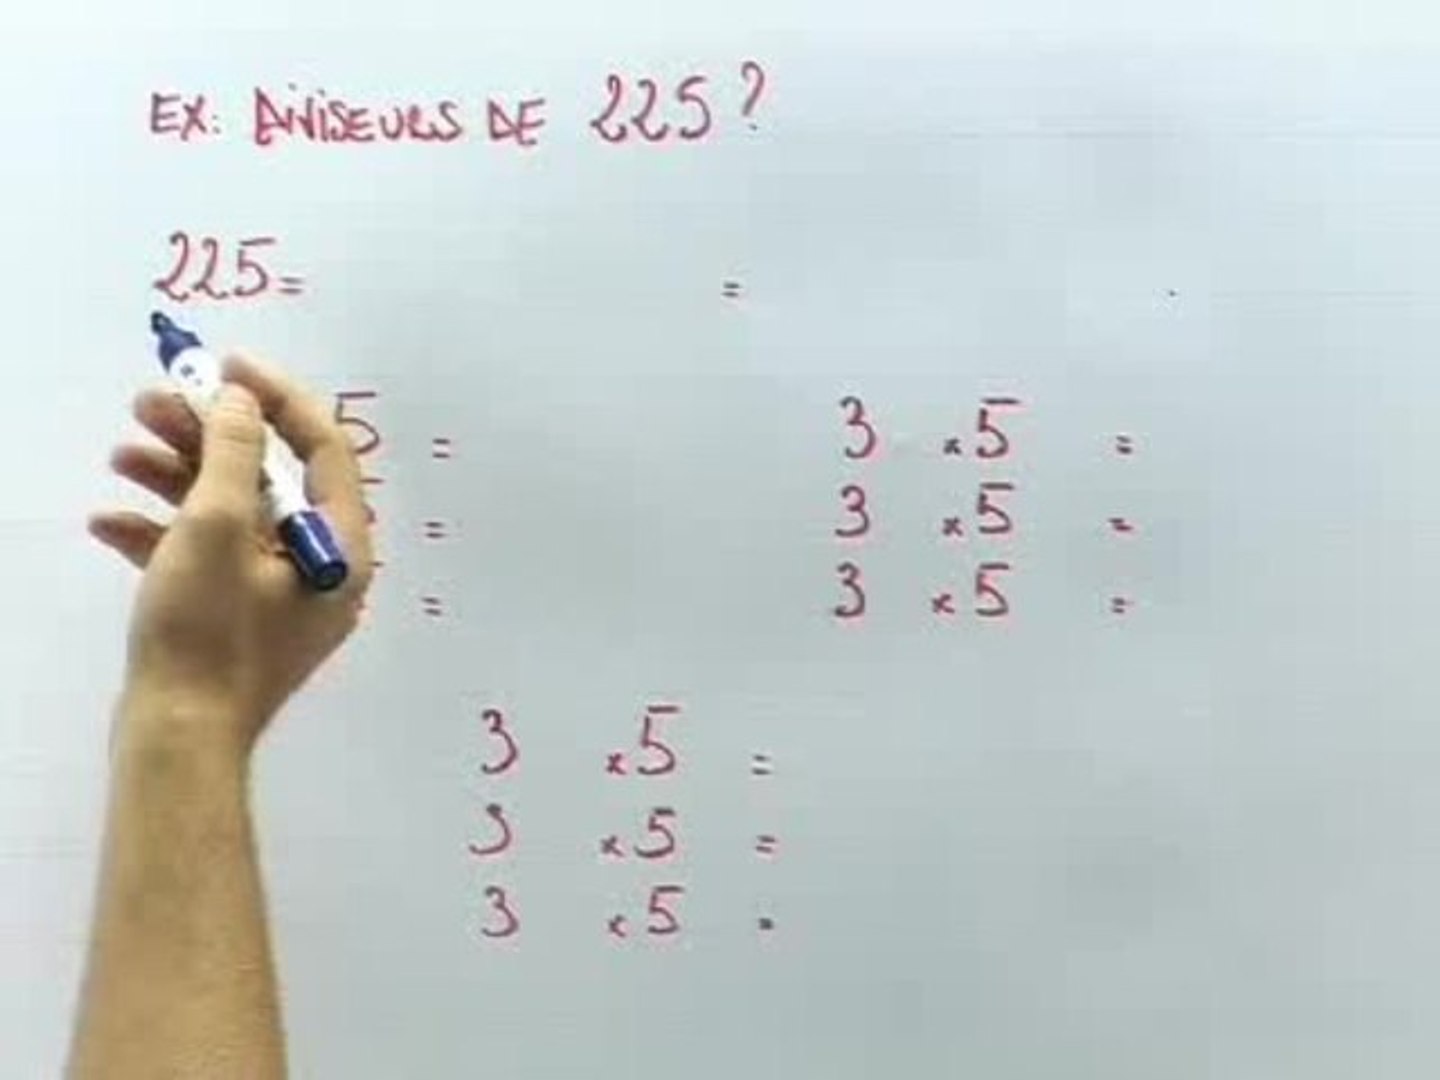 EX: DIVISEURS DE 225?
225= =
5 = 3 × 5 =
= 3 × 5 =
= 3 × 5 =
3 × 5 =
3 × 5 =
3 × 5 =